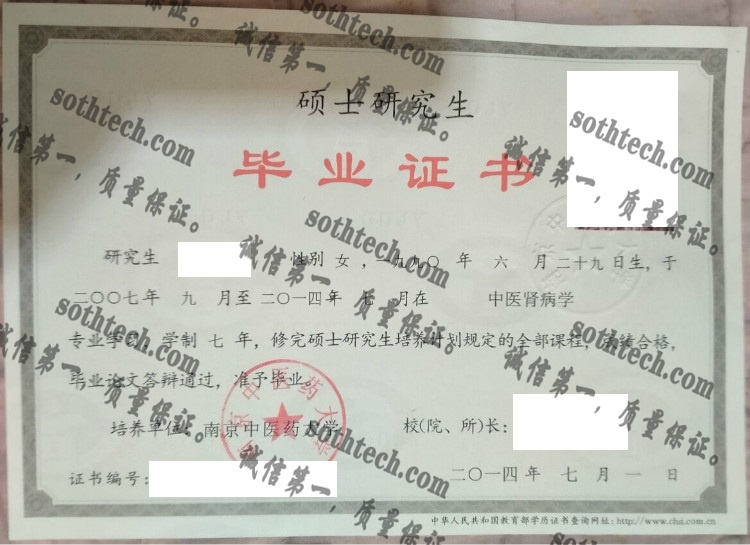 硕士研究生
毕业证书
研究生 性别 女 ，一九九〇 年 六 月 二十九 日生，于
二〇〇七年 九 月至 二〇一四年 七 月在 中医肾病学
专业学习，学制 七 年，修完硕士研究生培养计划规定的全部课程，成绩合格，
毕业论文答辩通过，准予毕业。
培养单位：南京中医药大学 校(院、所)长：
证书编号： 二〇一四年 七 月 一 日
中华人民共和国教育部学历证书查询网址：http://www.chsi.com.cn
南京中医药大学
sothtech.com
诚信第一，质量保证。
sothtech.com
诚信第一，质量保证。
sothtech.com
诚信第一，质量保证。
sothtech.com
诚信第一，质量保证。
sothtech.com
诚信第一，质量保证。
sothtech.com
诚信第一，质量保证。
sothtech.com
诚信第一，质量保证。